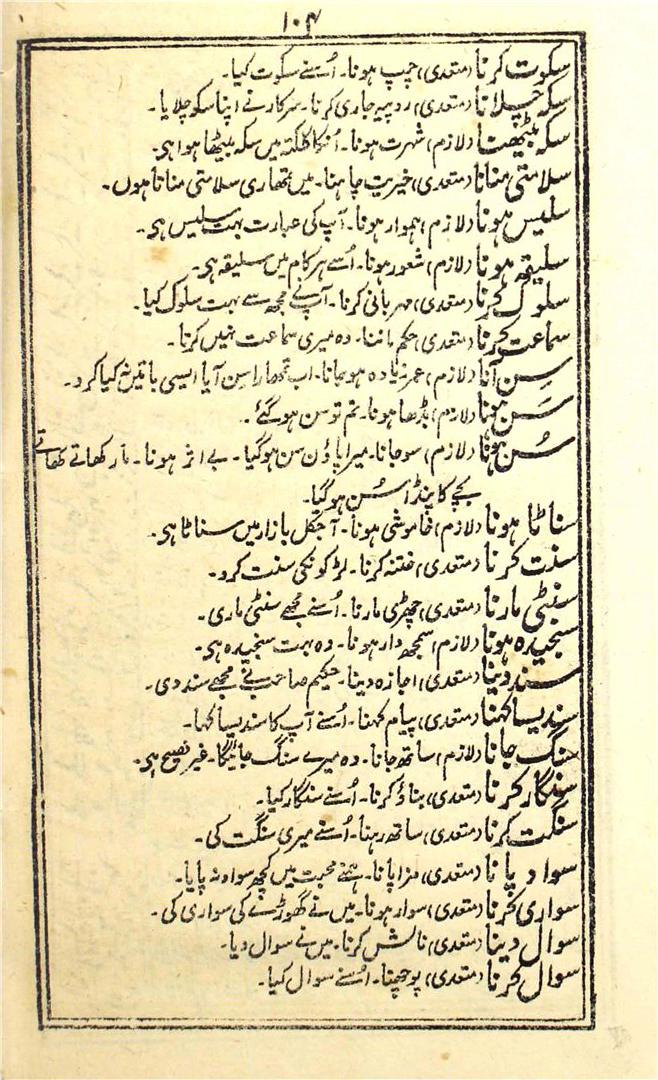 ۱۰۴
سکوت کرنا (متعدی) چپ ہونا۔ اُسنے سکوت کیا۔
سکہ چلانا (متعدی) روپیہ جاری کرنا۔ سرکار نے اپنا سکو چلایا۔
سکہ بیٹھنا (لازم) شہرت ہونا۔ اُنکا کلکتہ میں سکہ بیٹھا ہوا ہی۔
سلامتی منانا (متعدی) خیریت چاہنا۔ میں تمھاری سلامتی مناتا ہوں۔
سلیس ہونا (لازم) ہموار ہونا۔ آپ کی عبارت بہت سلیس ہی۔
سلیقہ ہونا (لازم) شعور ہونا۔ اُسے ہر کام میں سلیقہ ہی۔
سلوک کرنا (متعدی) مہربانی کرنا۔ آپ نے مجھ سے بہت سلوک کیا۔
سماعت کرنا (متعدی) حکم ماننا۔ وہ میری سماعت نہیں کرتا۔
سِن آنا (لازم) عمر زیادہ ہوجانا۔ اب تمھارا سِن آیا ایسی باتیں نہ کیا کرو۔
سَن ہونا (لازم) بڈھا ہونا۔ تم تو سن ہو گئے۔
سُن ہونا (لازم) سوجانا۔ میرا پاؤن سن ہوگیا۔ بے اثر ہونا۔ مار کھاتے کھاتے
بچے کا پنڈا سُن ہو گیا۔
سناٹا ہونا (لازم) خاموشی ہونا۔ آجکل بازار میں سناٹا ہی۔
سنت کرنا (متعدی) ختنہ کرنا۔ لڑکونکی سنت کردو۔
سنٹی مارنا (متعدی) چھڑی مارنا۔ اُسنے مجھے سنٹی ماری۔
سنجیدہ ہونا (لازم) سمجھ دار ہونا۔ وہ بہت سنجیدہ ہی۔
سند دینا (متعدی) اجازہ دینا۔ حکیم صاحب نے مجھے سند دی۔
سندیسا کہنا (متعدی) پیام کہنا۔ اُسنے آپ کا سندیسا کہا۔
سنگ جانا (لازم) ساتھ جانا۔ وہ میرے سنگ جائیگا۔ غیر فصیح ہی۔
سنگار کرنا (متعدی) بناؤ کرنا۔ اُسنے سنگار کیا۔
سنگت کرنا (متعدی) ساتھ رہنا۔ اُسنے میری سنگت کی۔
سواد پانا (متعدی) مزا پانا۔ ہمنے محبت میں کچھ سواد نہ پایا۔
سواری کرنا (متعدی) سوار ہونا۔ میں نے گھوڑے کی سواری کی۔
سوال دینا (متعدی) نالش کرنا۔ میں نے سوال دیا۔
سوال کرنا (متعدی) پوچھنا۔ اُسنے سوال کیا۔